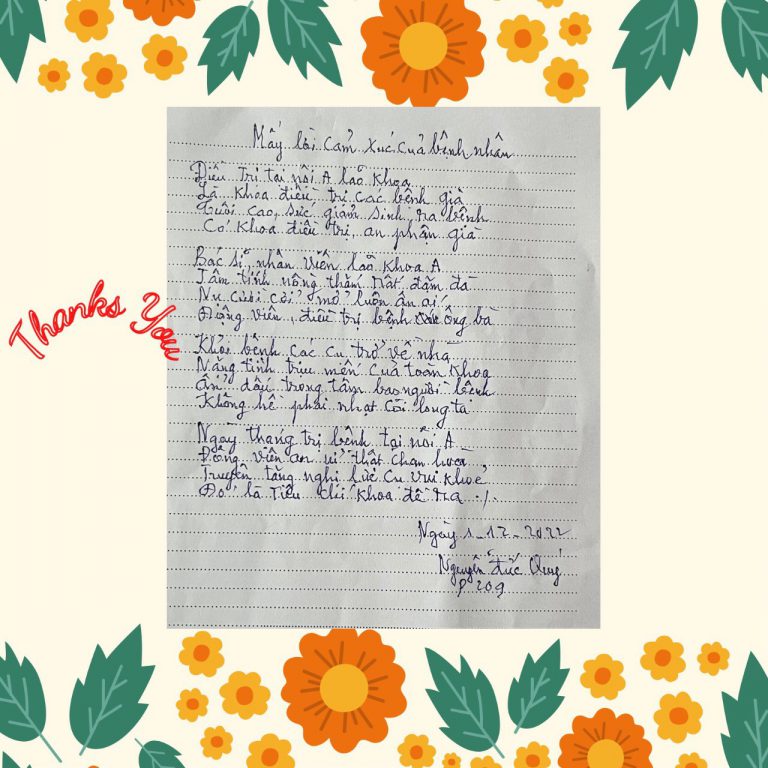 Mấy lời cảm xúc của bệnh nhân
Điều trị tại nội A lão khoa
Là khoa điều trị các bệnh già
Tuổi cao, sức giảm sinh ra bệnh
Có khoa điều trị, an phận già
Bác sĩ, nhân viên lão khoa A
Tâm tính nồng thắm rất đậm đà
Nụ cười cởi mở luôn ân ái
Động viên, điều trị bệnh ông bà
Thanks You
Khỏi bệnh các cụ trở về nhà
Nặng tình trìu mến của toàn khoa
Ẩn dấu trong tâm bao người bệnh
Không hề phai nhạt cõi lòng ta
Ngày tháng trị bệnh tại nội A
Động viên an ủi thật chan hoà
Truyền tăng nghị lực cụ vui khoẻ
Đó là tiêu chí khoa đề ra ./.
Ngày 1-12-2022
Nguyễn Đức Quý
P 209